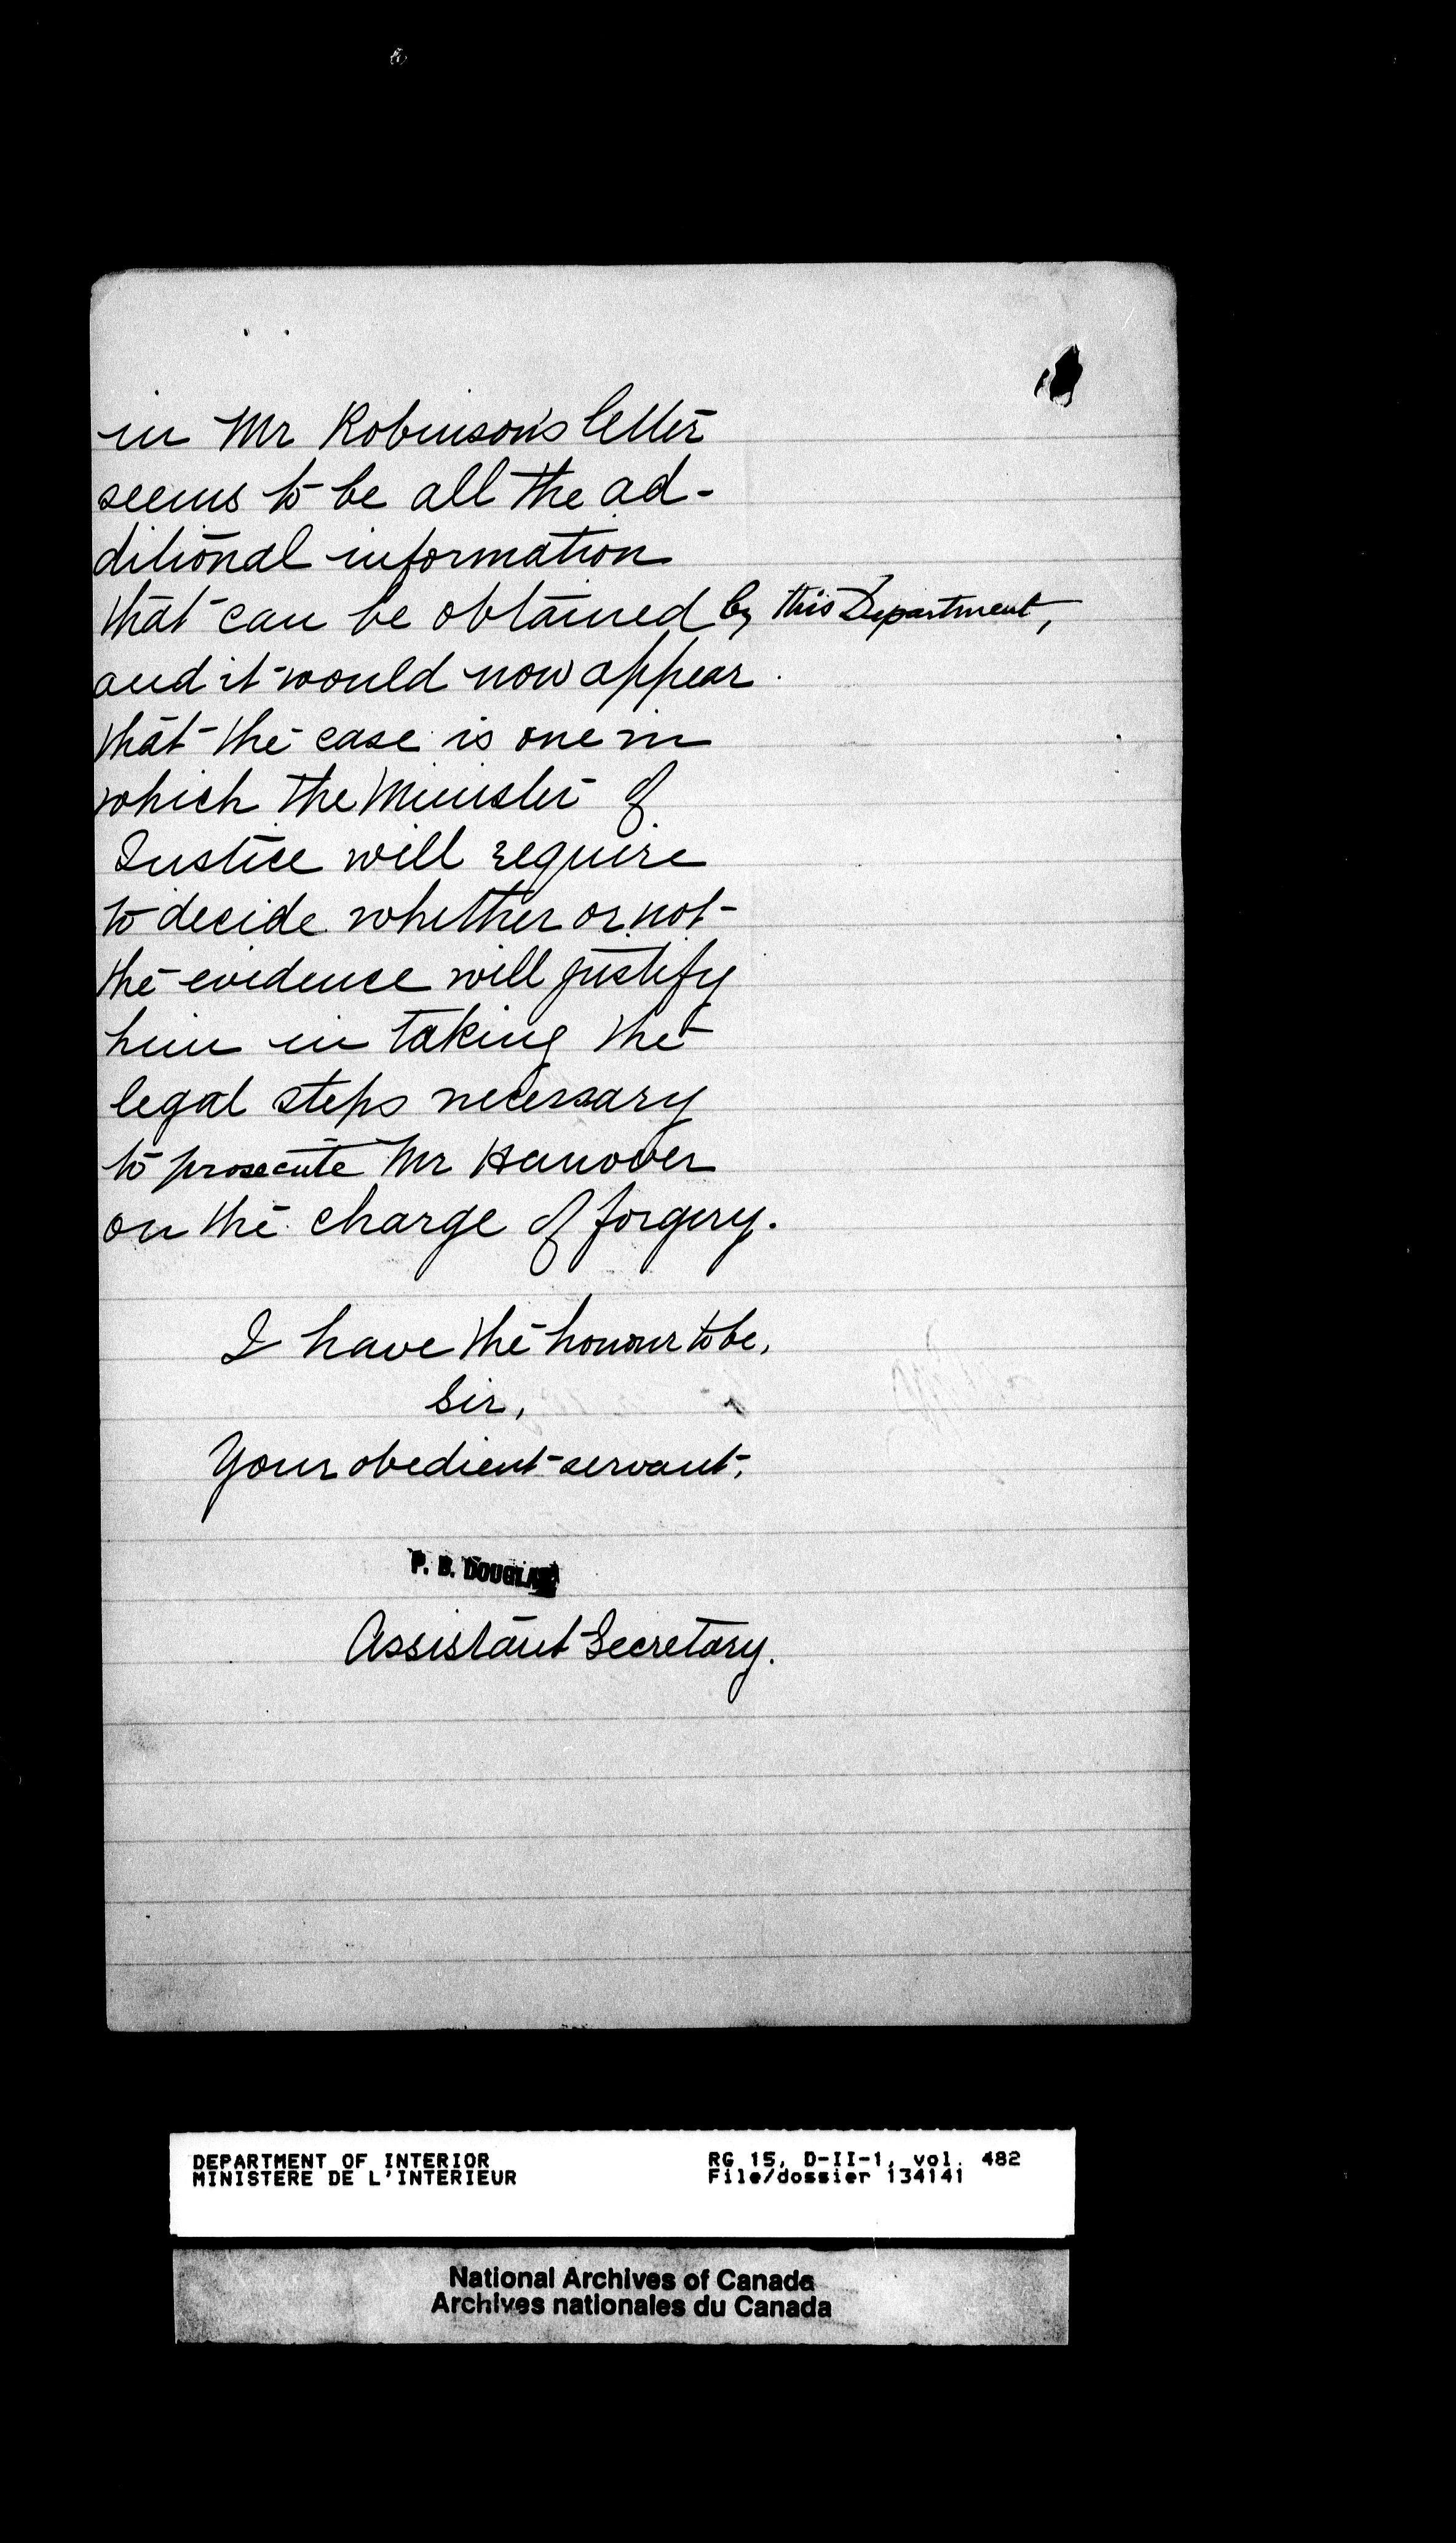 in Mr Robinson's letter
seems to be all the ad-
ditional information
that can be obtained by this Department,
and it would now appear
that the case is one in
which the Minister of
Justice will require
to decide whether or not
the evidence will justify
him in taking the
legal steps necessary
to prosecute Mr Hanover
on the charge of forgery.
I have the honour to be,
Sir,
Your obedient servant,
P. B. DOUGLAS
Assistant Secretary.
DEPARTMENT OF INTERIOR
MINISTERE DE L'INTERIEUR
RG 15, D-II-1, vol. 482
File/dossier 134141
National Archives of Canada
Archives nationales du Canada